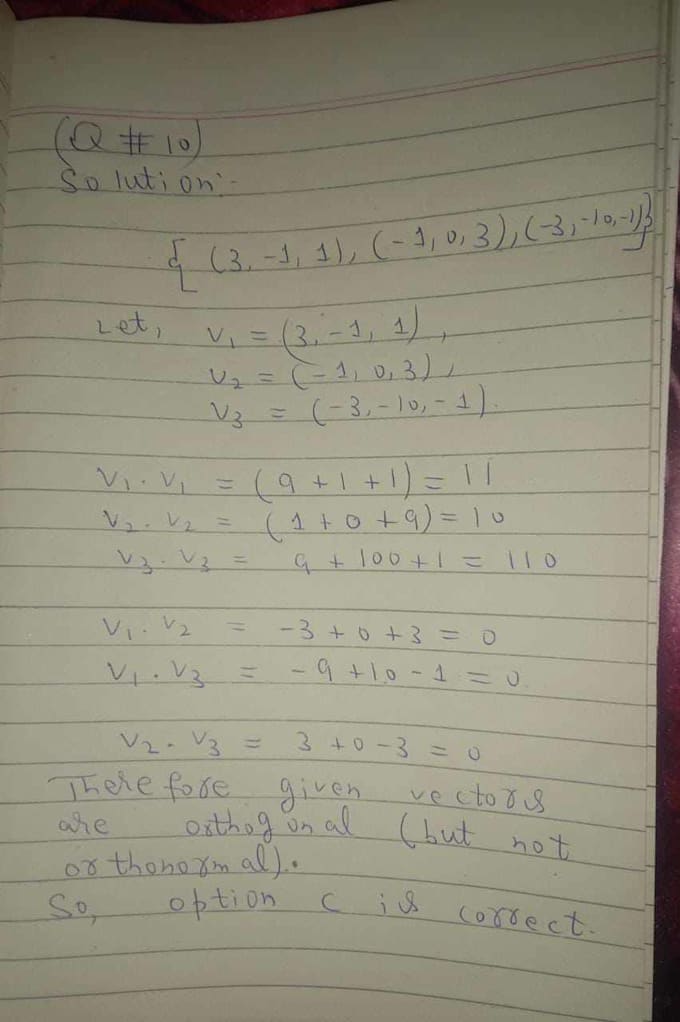 (Q # 10)
Solution:-
{ (3, -1, 1), (-1, 0, 3), (-3, -10, -1)}
Let, V₁ = (3, -1, 1),
V₂ = (-1, 0, 3),
V₃ = (-3, -10, -1).
V₁. V₁ = (9 + 1 + 1) = 11
V₂. V₂ = (1 + 0 + 9) = 10
V₃. V₃ = 9 + 100 + 1 = 110
V₁. V₂ = -3 + 0 + 3 = 0
V₁. V₃ = -9 + 10 - 1 = 0
V₂. V₃ = 3 + 0 - 3 = 0
Therefore given vectors
are orthogonal (but not
orthonormal).
So, option c is correct.